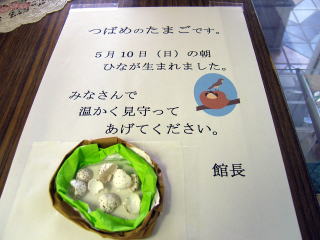 つばめのたまごです。
５月１０日（日）の朝
ひなが生まれました。
みなさんで
温かく見守って
あげてください。
館長